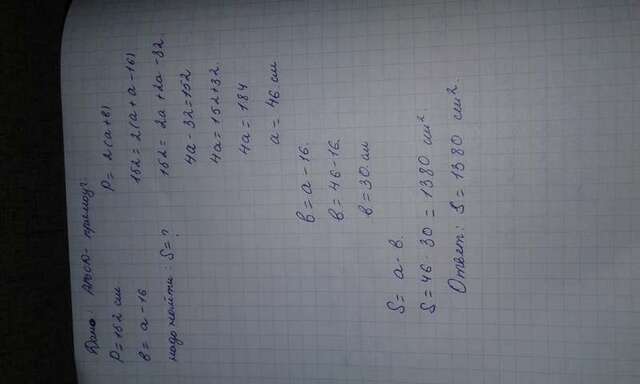 Дано: ABCD - прямоуг.
P = 152 см
b = a - 16
надо найти: S = ?
P = 2(a+b)
152 = 2(a + a - 16)
152 = 2a + 2a - 32
4a - 32 = 152
4a = 152 + 32
4a = 184
a = 46 см
b = a - 16.
b = 46 - 16.
b = 30 см
S = a · b.
S = 46 · 30 = 1380 см².
Ответ: S = 1380 см².